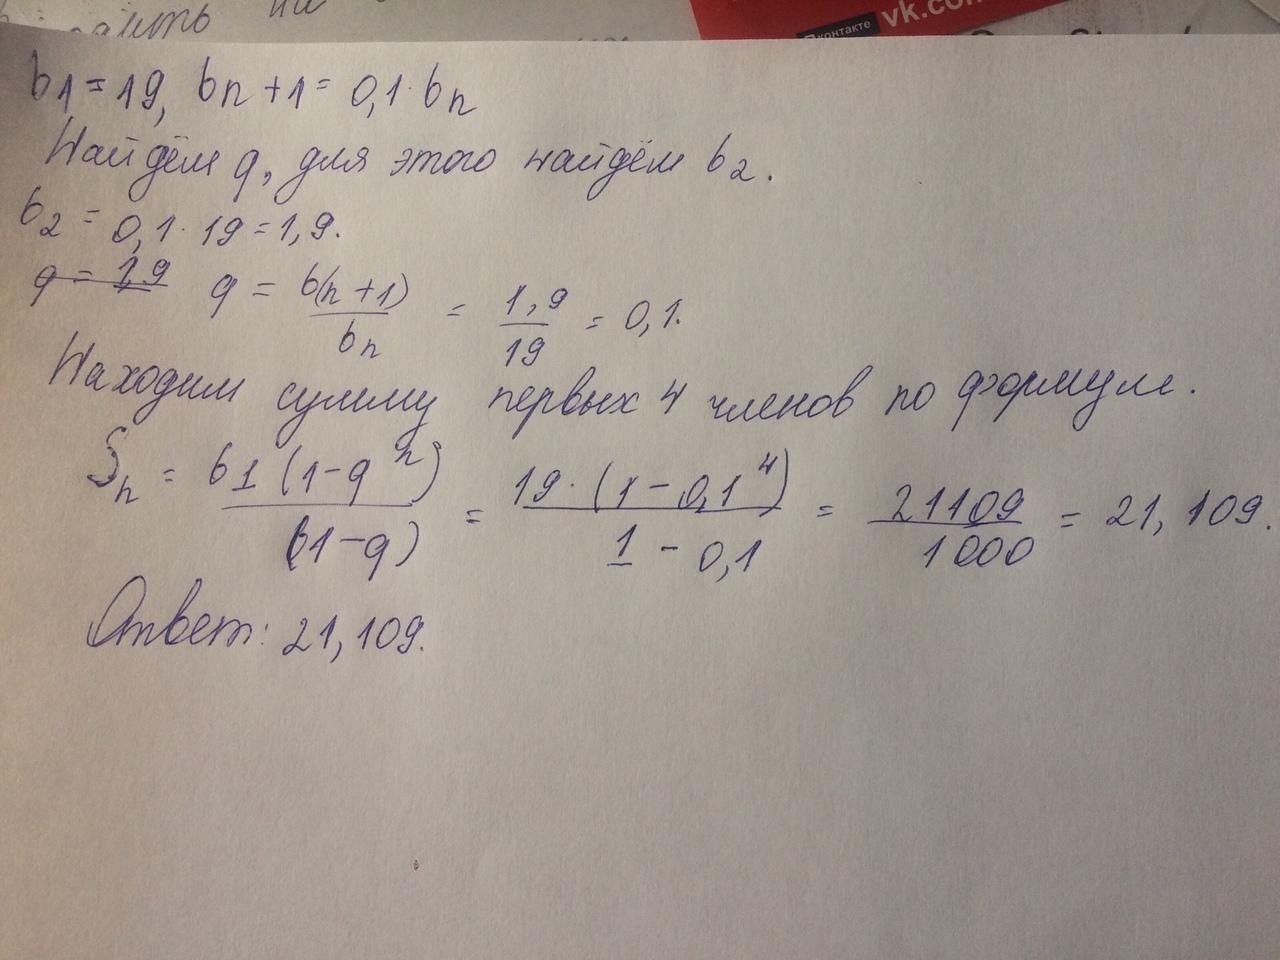 дить на
Вконтакте
vk.com
b1 = 19, bn+1 = 0,1 · bn
Найдём q, для этого найдём b2.
b2 = 0,1 · 19 = 1,9.
q = 1,9 q = b(n+1) / bn = 1,9 / 19 = 0,1.
Находим сумму первых 4 членов по формуле.
Sn = b1(1-q^n) / (1-q) = 19·(1-0,1^4) / 1-0,1 = 21109 / 1000 = 21,109.
Ответ: 21,109.